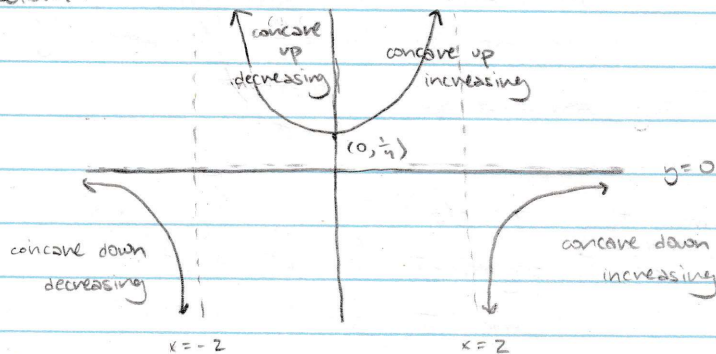 concave
up
decreasing
concave up
increasing
(0, 1/4)
y=0
concave down
decreasing
concave down
increasing
x = -2
x = 2